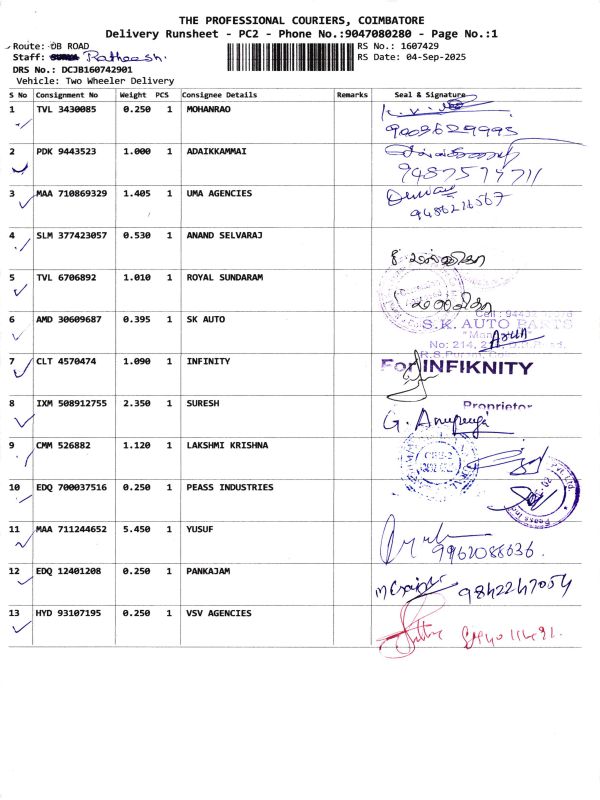 THE PROFESSIONAL COURIERS, COIMBATORE
Delivery Runsheet - PC2 - Phone No.:9047080280 - Page No.:1
Route: DB ROAD
RS No.: 1607429
Staff: Ratheesh.
RS Date: 04-Sep-2025
DRS No.: DCJB160742901
Vehicle: Two Wheeler Delivery
S No Consignment No Weight PCS Consignee Details Remarks Seal & Signature
1 TVL 3430085 0.250 1 MOHANRAO
9009629995
2 PDK 9443523 1.000 1 ADAIKKAMMAI
3 MAA 710869329 1.405 1 UMA AGENCIES
4 SLM 377423057 0.530 1 ANAND SELVARAJ
5 TVL 6706892 1.010 1 ROYAL SUNDARAM
6 AMD 30609687 0.395 1 SK AUTO
S.K. AUTO PARTS
No: 214,
7 CLT 4570474 1.090 1 INFINITY
For INFIKNITY
8 IXM 508912755 2.350 1 SURESH
Proprietor
G.
9 CMM 526882 1.120 1 LAKSHMI KRISHNA
10 EDQ 700037516 0.250 1 PEASS INDUSTRIES
11 MAA 711244652 5.450 1 YUSUF
9962088636.
12 EDQ 12401208 0.250 1 PANKAJAM
9842247054
13 HYD 93107195 0.250 1 VSV AGENCIES